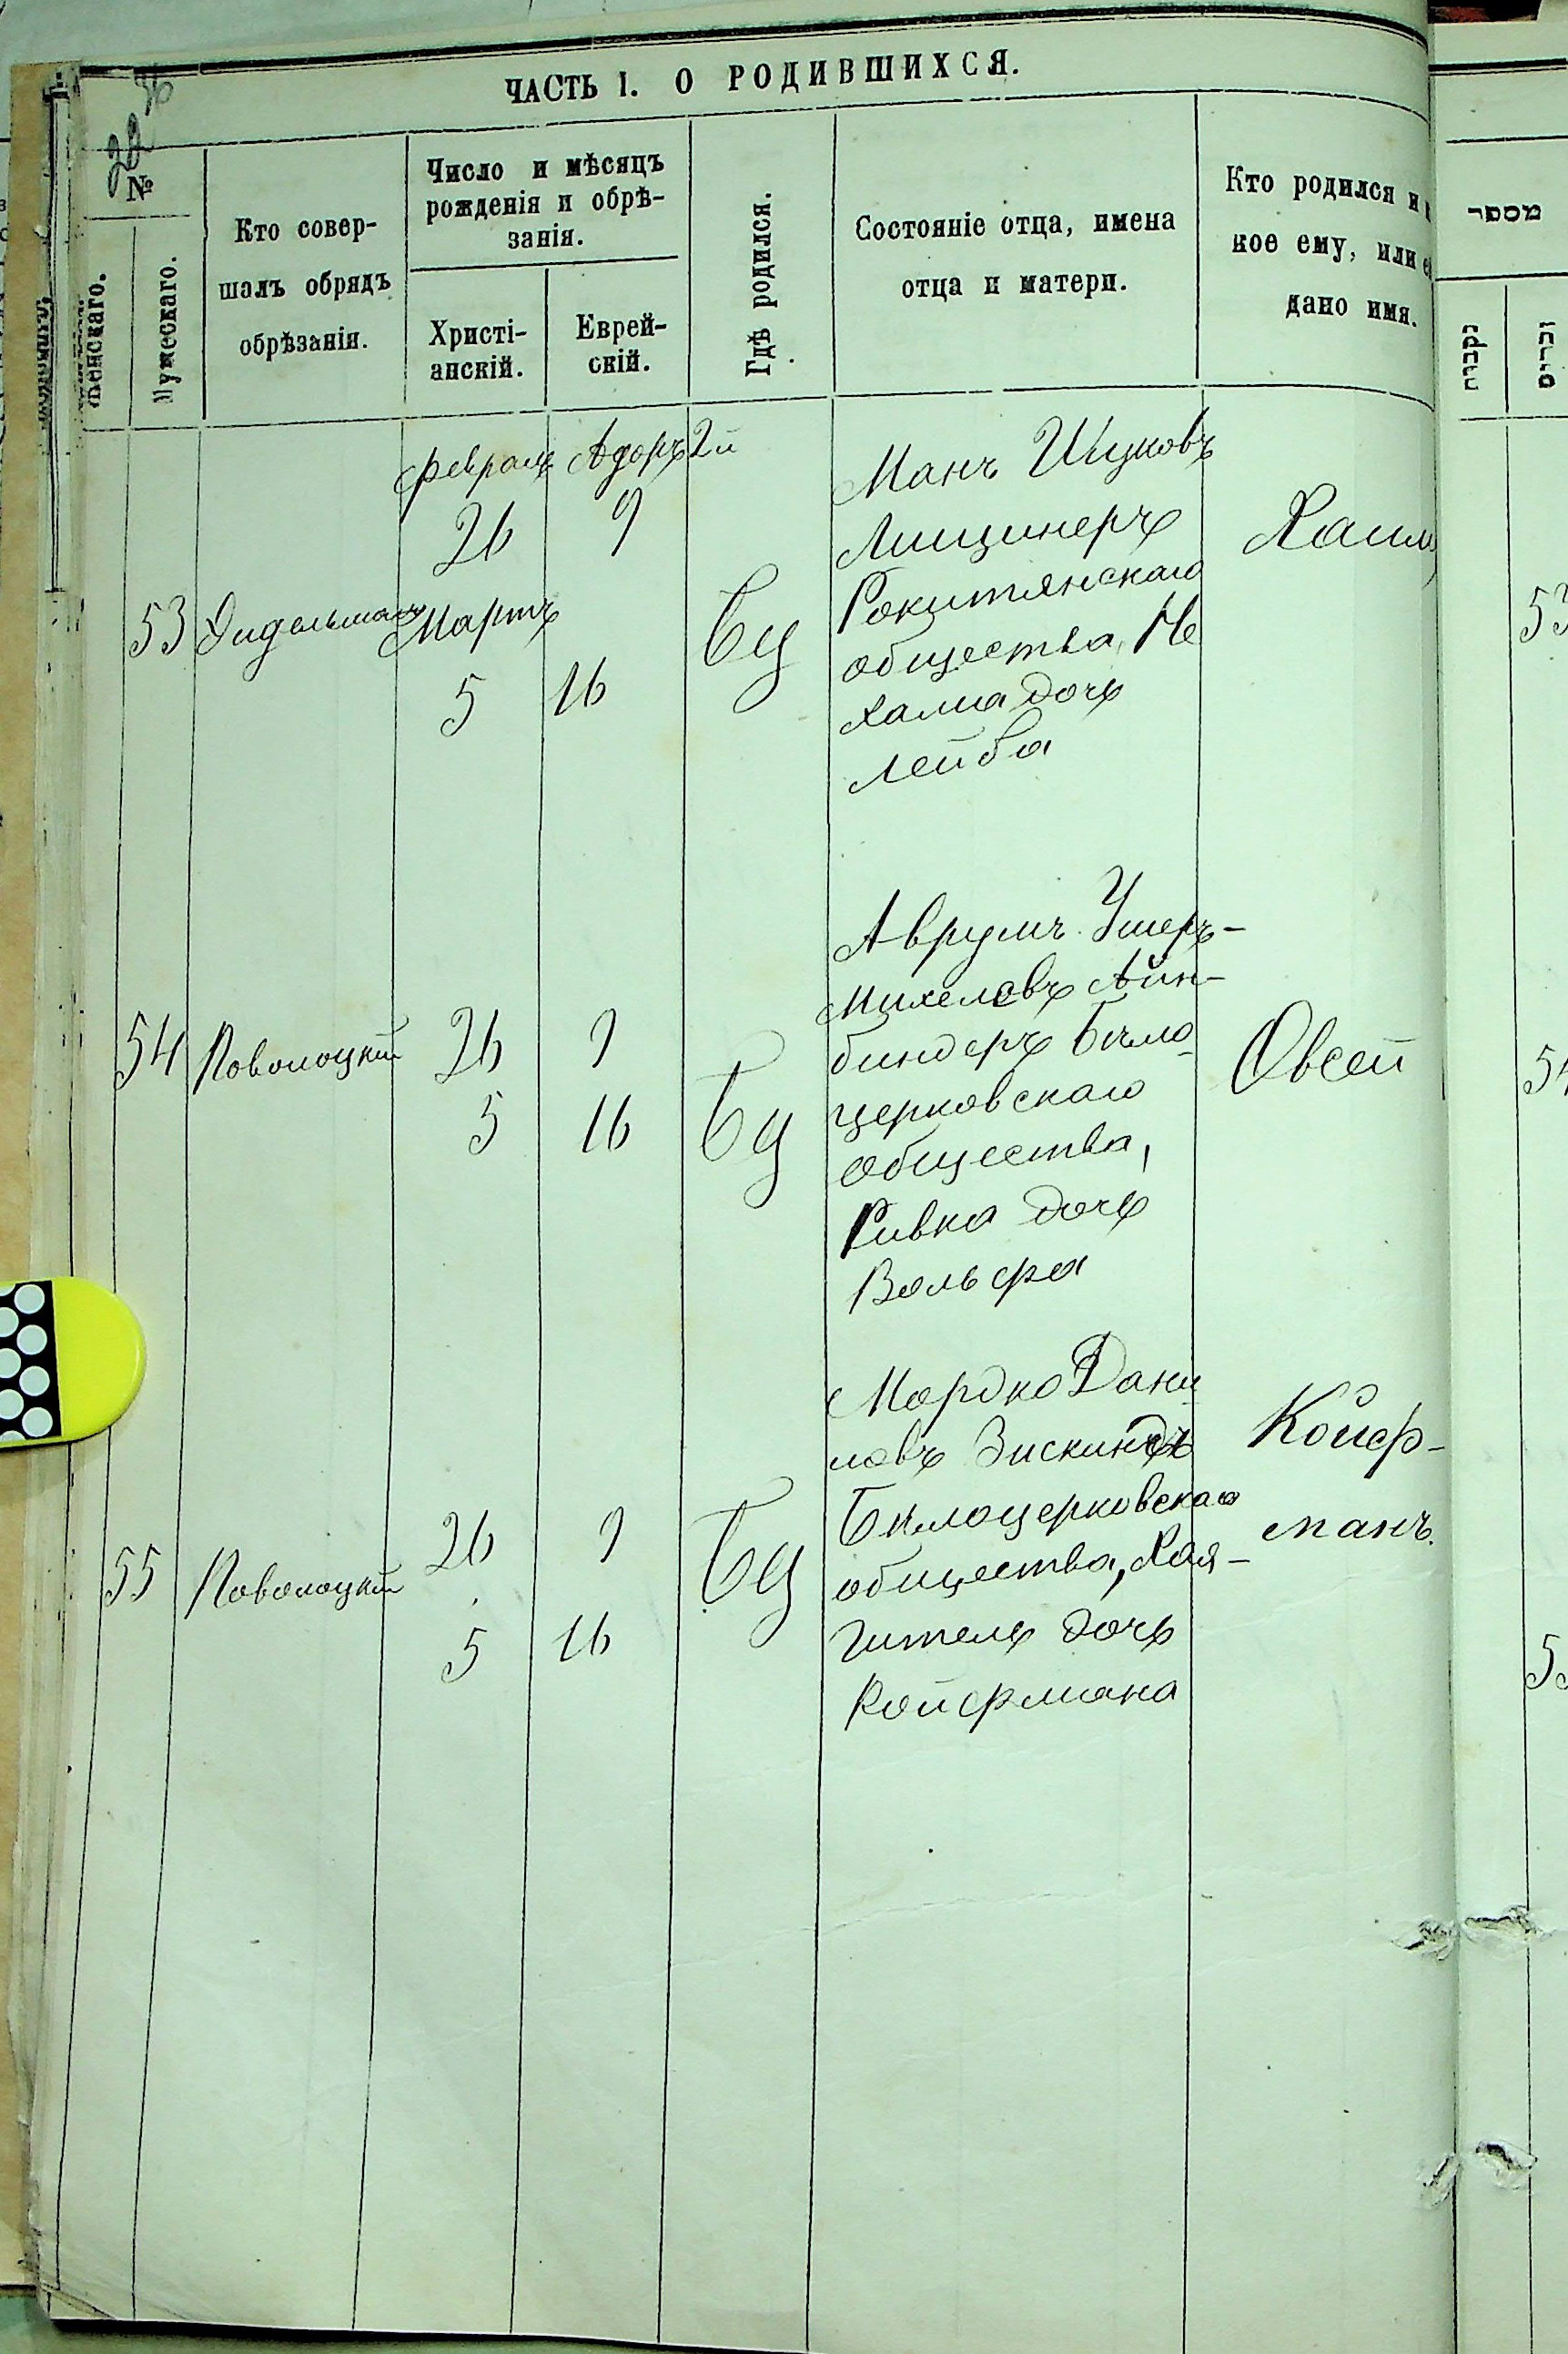 ЧАСТЬ I. О РОДИВШИХСЯ.
№
Женскаго.
Мужескаго.
Кто совер-
шалъ обрядъ
обрѣзанія.
Число и мѣсяцъ
рожденія и обрѣ-
занія.
Христі-
анскій.
Еврей-
скій.
Гдѣ родился.
Состояніе отца, имена
отца и матери.
Кто родился и
кое ему, или
дано имя.
מספר
נקבות
זכרים
Февраль Адаръ 2й
26 9
Мартъ
5 16
53
БЦ
Манъ Ицковъ
Лищинеръ
Рокитянскаго
общества, Не
хама дочь
Лейба
Хаим
53
54 Поволоцкій
26 9
5 16
БЦ
Аврумъ Ушеръ-
Михелевъ Айн-
биндеръ Бѣло-
церковскаго
общества,
Ривка дочь
Вольфа
Овсей
55 Поволоцкій
26 9
5 16
БЦ
Мордко Дани-
ловъ Зискиндъ
Бѣлоцерковскаго
общества, Хая-
Гитель дочь
Койфмана
Койф-
манъ.